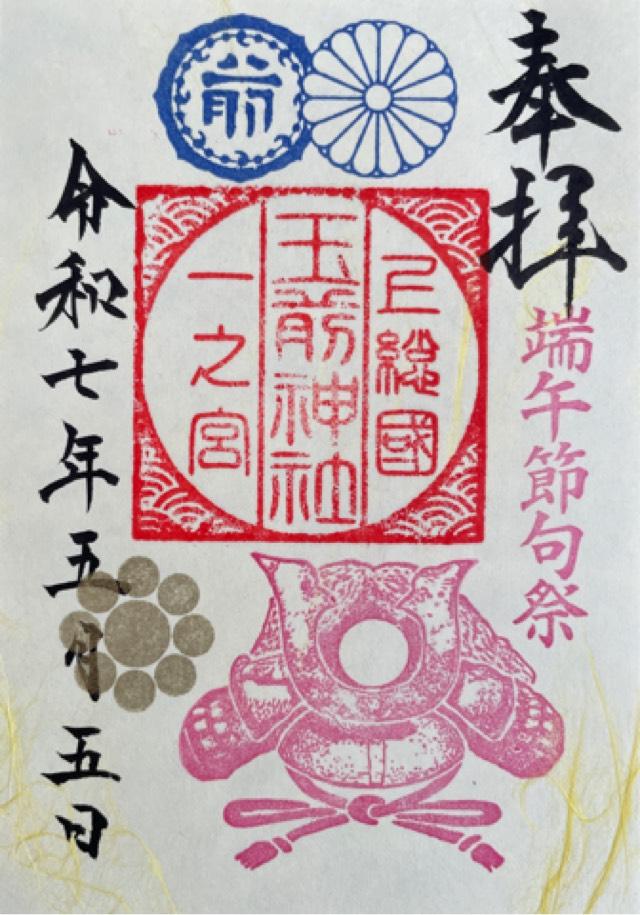 奉拝
端午節句祭
前
上総國
玉前神社
一之宮
令和七年五月五日